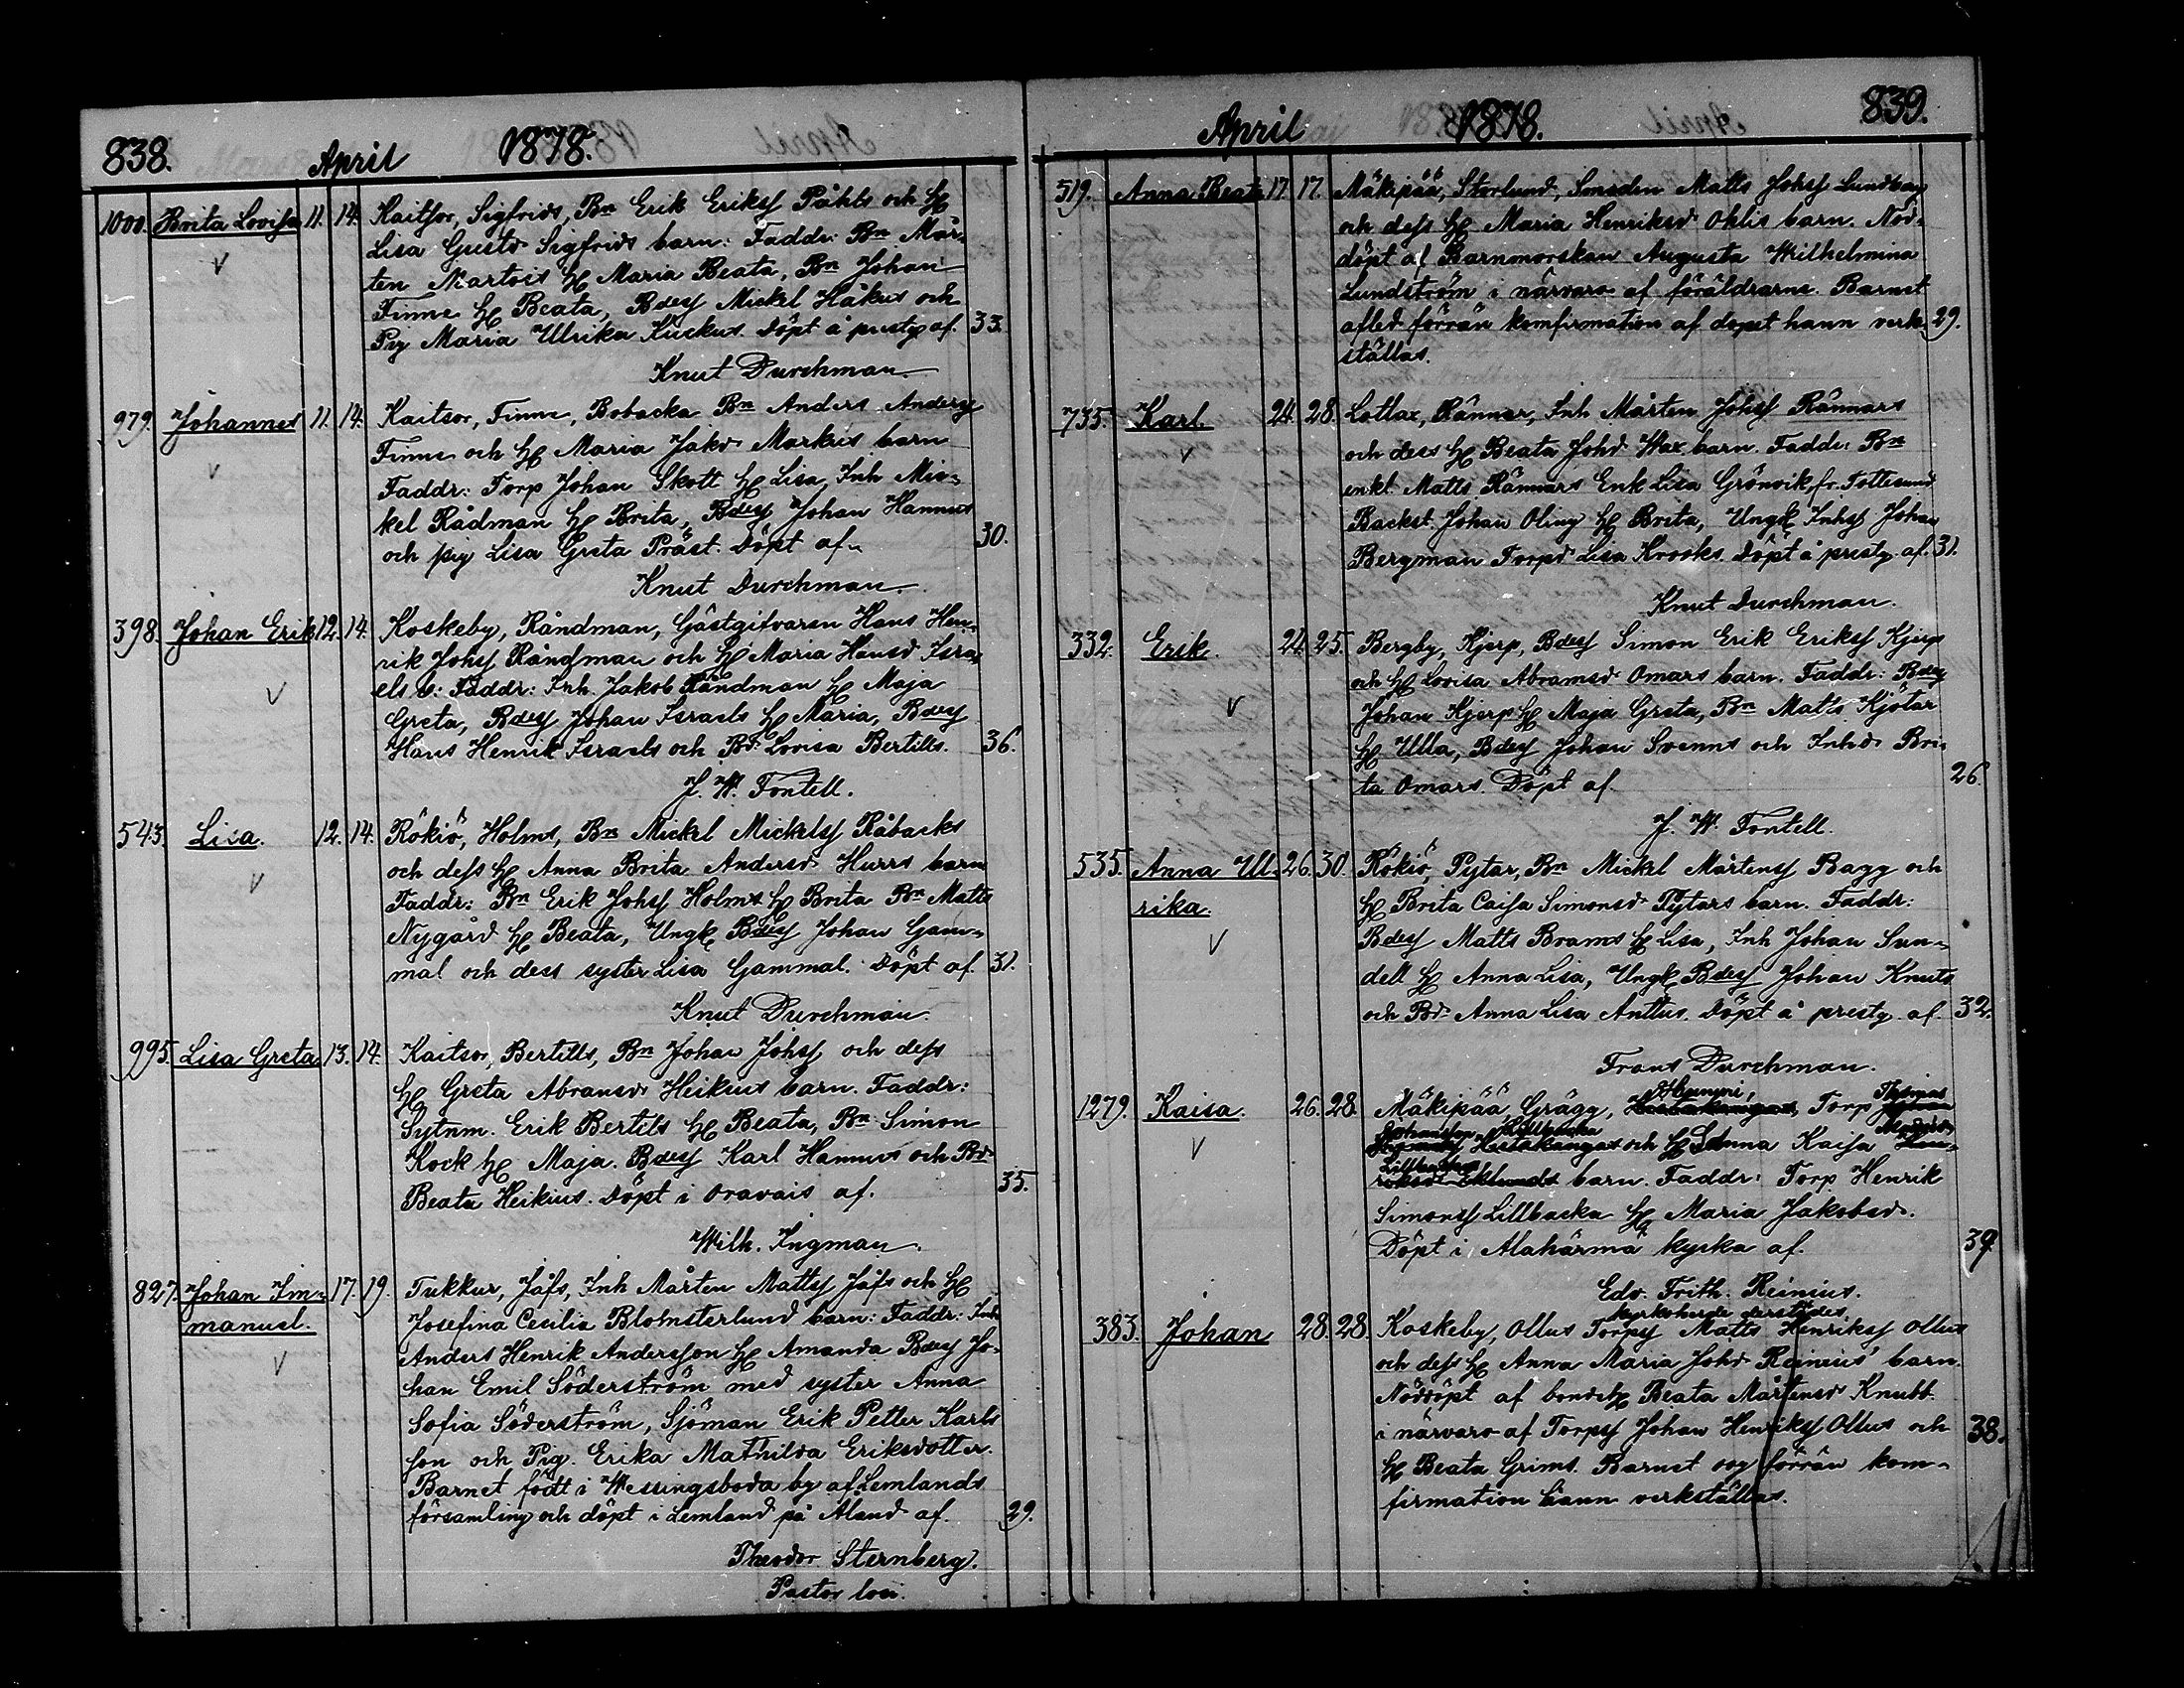 838. April 1878.
1000. Brita Lovisa 11. 14. Kaitsor, Sigfrids, Bn Erik Eriksſ Påhls och Hu
Lisa Gustd. Sigfrids barn: Faddr: Bn Mår-
ten Martois Hu Maria Beata, Bn Johan
Finne Hu Beata, Bdesſ Mickel Håkus och
Pig Maria Ulrika Kuckus. Döpt å prestg. af. 33.
Knut Durchman.
979. Johannes 11. 14. Kaitsor, Finne, Bobacka Bn Anders Andersſ
Finne och Hu Maria Jakd. Markus barn
Faddr: Torp Johan Skott Hu Lisa, Inh Mic-
kel Rådman Hu Brita, Bdesſ Johan Hannus
och pig Lisa Greta Präst. Döpt af. 30.
Knut Durchman.
398. Johan Erik 12. 14. Koskeby, Råndman, Gästgifvaren Hans Hen-
rik Johsſ Råndman och Hu Maria Hansd. Isra-
els b: Faddr: Inh. Jakob Råndman Hu Maja
Greta, Bdesſ Johan Israels Hu Maria, Bdesſ
Hans Henrik Israels och Bd. Lovisa Bertills. 36.
J. W. Fontell.
543. Lisa. 12. 14. Rökiö, Holms, Bn Mickel Mickelsſ Råbacks
och dess Hu Anna Brita Andersd. Hurrs barn
Faddr: Bn Erik Johsſ Holms Hu Brita Bn Matts
Nygård Hu Beata, Ungk Bdesſ Johan Gam-
mal och dess syster Lisa Gammal. Döpt af. 31.
Knut Durchman.
995. Lisa Greta 13. 14. Kaitsor, Bertills, Bn Johan Johsſ och dess
Hu Greta Abramsd. Heikius barn. Faddr:
Sytnm. Erik Bertils Hu Beata, Bn Simon
Kock Hu Maja. Bdesſ Karl Hannus och Bd.
Beata Heikius. Döpt i Oravais af. 35.
Wilh. Ingman.
827. Johan Im- 17. 19. Tukkur, Jåfs, Inh Mårten Mattsſ Jåfs och Hu
manuel. Josefina Cecilia Blomsterlund barn: Faddr: Inh
Anders Henrik Andersson Hu Amanda Bdesſ Jo-
han Emil Söderström med syster Anna
Sofia Söderström, Sjöman Erik Petter Karls
son och Pig. Erika Mathilda Eriksdotter.
Barnet födt i Wessingsboda by af Lemlands
församling och döpt i Lemland på Åland af. 29.
Theodor Sternberg.
Pastor loci.
April 1878. 839.
519. Anna Beata 17. 17. Mäkipää, Storlund, Smeden Matts Johsſ Lundberg
och dess Hu Maria Henriksd. Oklis barn. Nöd-
döpt af Barnmorskan Augusta Wilhelmina
Lundström i närvaro af föräldrarne. Barnet
afled förrän komfirmation af dopet hann verk- 29.
ställas.
735. Karl. 24. 28. Lotlax, Rännar, Inh Mårten Johsſ Rännars
och dess Hu Beata Johd. Wax barn. Faddr: Bn
enkl. Matts Rännars Enk Lisa Grönvik, fr. Tottesund
Backst. Johan Oling Hu Brita, Ungk Inhsſ Johan
Bergman Torpd. Lisa Krooks. Döpt å prestg. af. 31.
Knut Durchman.
332. Erik. 24. 25. Bergby, Kjerp, Bdesſ Simon Erik Eriksſ Kjerp
och Hu Lovisa Abramsd. Omars barn. Faddr: Bdesſ
Johan Kjerp Hu Maja Greta, Bn Matts Kjötar
Hu Ulla, Bdesſ Johan Svenns och Inhd. Bri-
ta Omars. Döpt af. 26.
J. W. Fontell.
535. Anna Ul- 26. 30. Rökiö, Pytar, Bn Mickel Mårtensſ Bagg och
rika. Hu Brita Caisa Simonsd. Pytars barn. Faddr:
Bdesſ Matts Brams Hu Lisa, Inh Johan Sun-
dell Hu Anna Lisa, Ungk Bdesſ Johan Knuts
och Bd. Anna Lisa Anttus. Döpt å prestg. af. 32.
Frans Durchman.
1279. Kaisa. 26. 28. Mäkipää, Grägg, Torp Thomas
Johansson Lillbacka och Hu Anna Kaisa
Lillbacka barn. Faddr: Torp Henrik
Simonsſ Lillbacka Hu Maria Jakobsd.
Döpt i Alahärmä kyrka af. 39.
Edv. Frith. Reinius.
kyrkoherde derstädes
383. Johan 28. 28. Koskeby, Ollus Torpsſ Matts Henriksſ Ollus
och dess Hu Anna Maria Johd. Reinius barn.
Nöddöpt af bondeHu Beata Mårtensd. Knubb
i närvaro af Torpsſ Johan Henriksſ Ollus och 38.
Hu Beata Grims. Barnet dog förrän kom-
firmation hann verkställas.